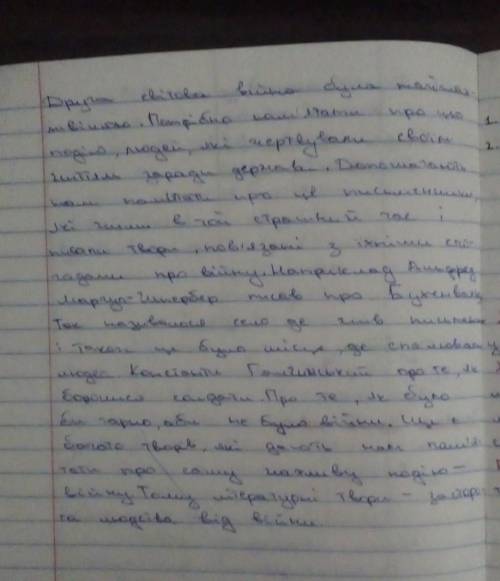 Друга світова війна була найжах-
ливішою. Потрібно пам'ятати про цю
подію, людей, які жертвували своїм
життям заради держави. Допомагають
нам пам'ятати про це письменники,
які жили в той страшний час і
писали твори, пов'язані з їхніми спо-
гадами про війну. Наприклад
писав про Бухенвальд
Так називалося село де жив письменник
і також це було місце, де спалювали
людей Константи Галчинський про те, як
боролися солдати. Про те, як було
би гарно, аби не було війни. Ще є
багато творів, які дають нам пам'я-
тати про саму жахливу подію -
війну. Тому літературні твори -
та людства від війни.
1.
2.